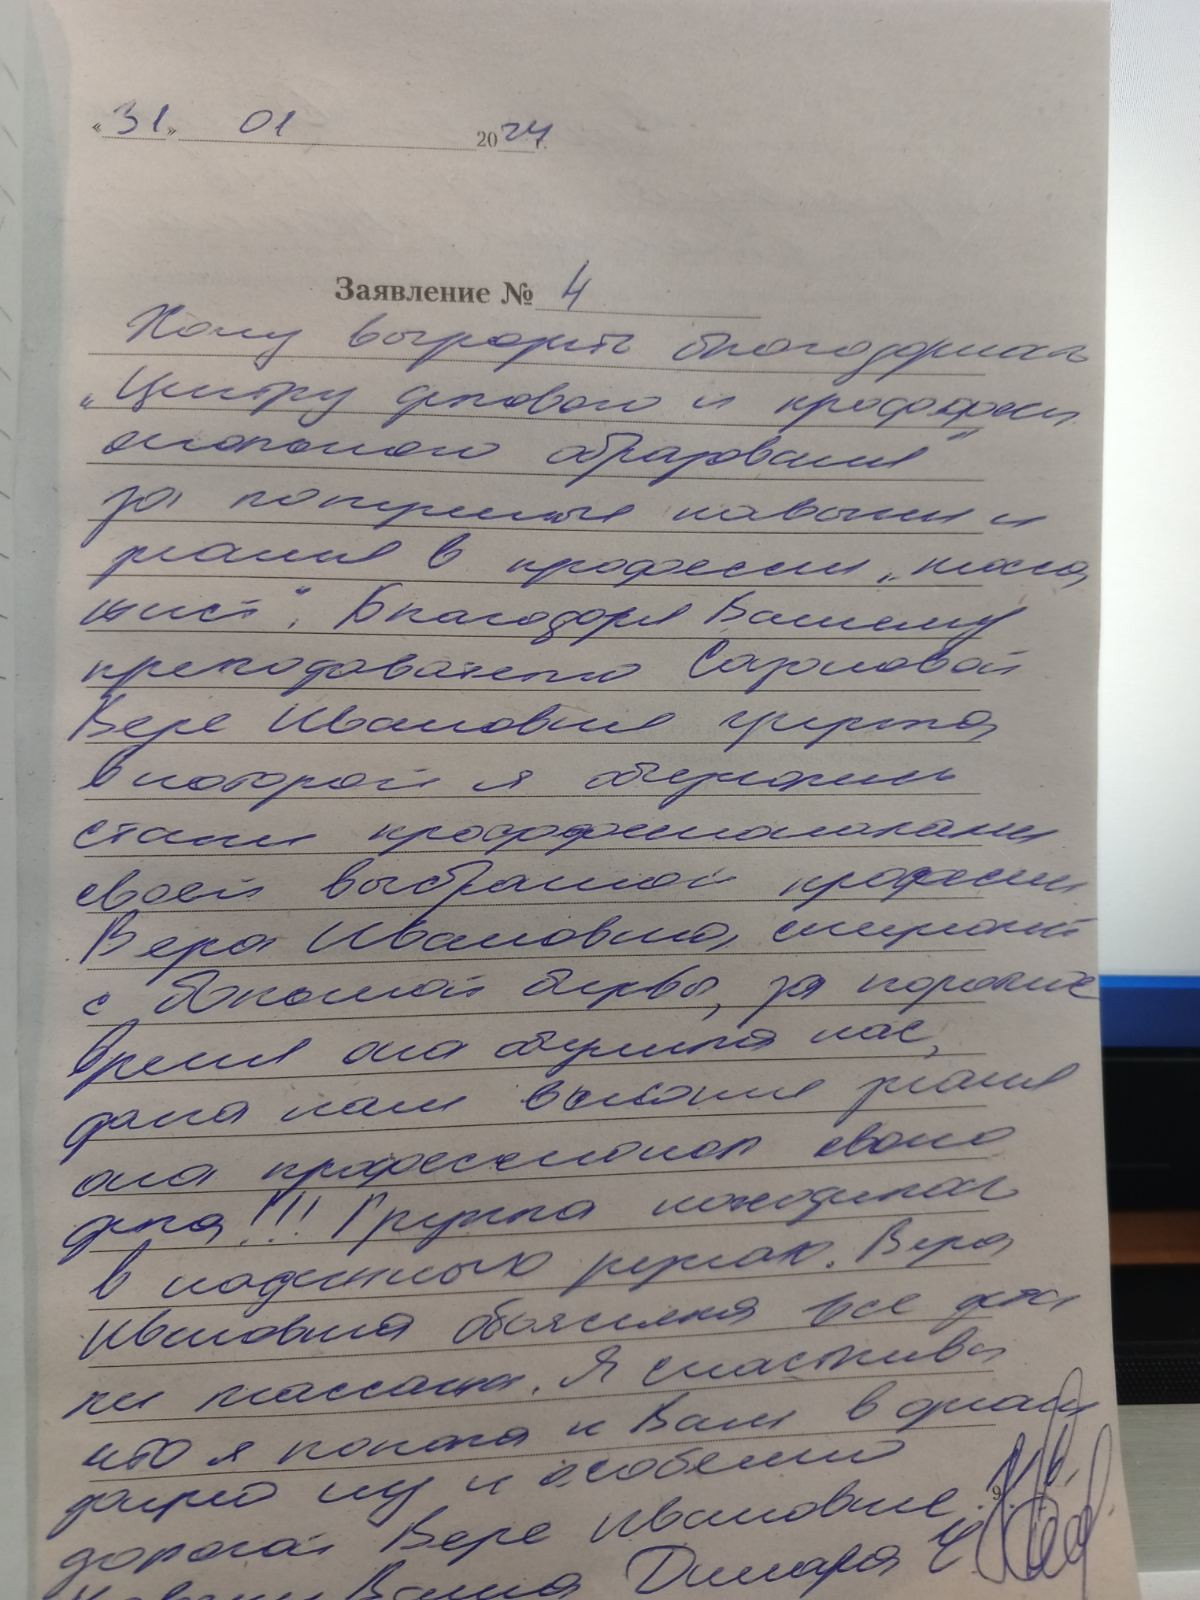 «31» 01 2024 г.
Заявление № 4
Хочу выразить благодарность
„Центру делового и профофесси
онального образования"
за полученные навыки и
знания в профессии „масса
жист". Благодаря Вашему
преподователю
Вере Ивановне группа
в которой я обучалась
стали профофессионалами
своей выбранной професии
Вера Ивановна, специалист
с большой буквы, за короткое
время она обучила нас,
дала нам высокие знания
она профессионал своего
дела!!! Группа находилась
в надежных руках. Вера
Ивановна объяснила все дета
ли массажа. Я счастлива
что я попала к Вам в
и особенно
дорогой Вере Ивановне.
Ваша Динара
9